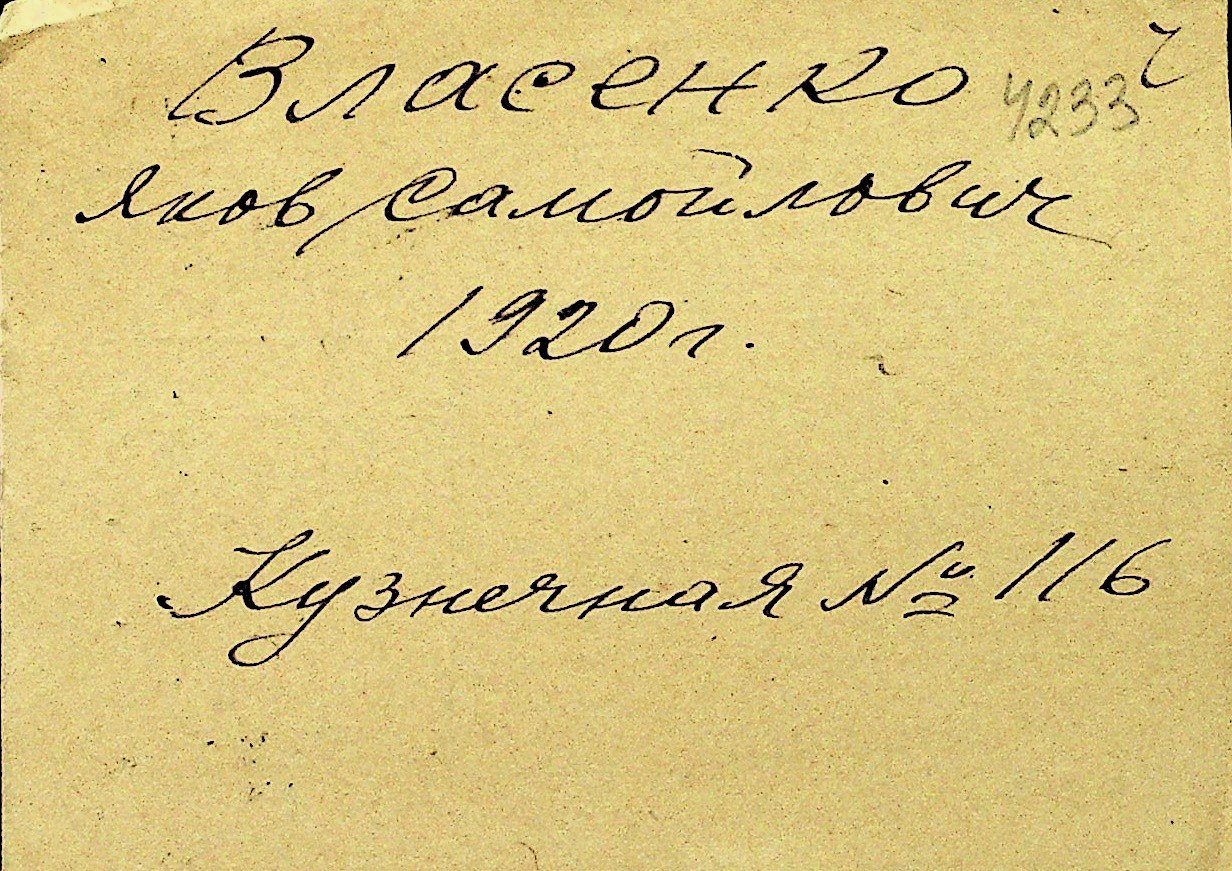 Власенко 4233
Яков Самойлович
1920г.
Кузнечная № 116